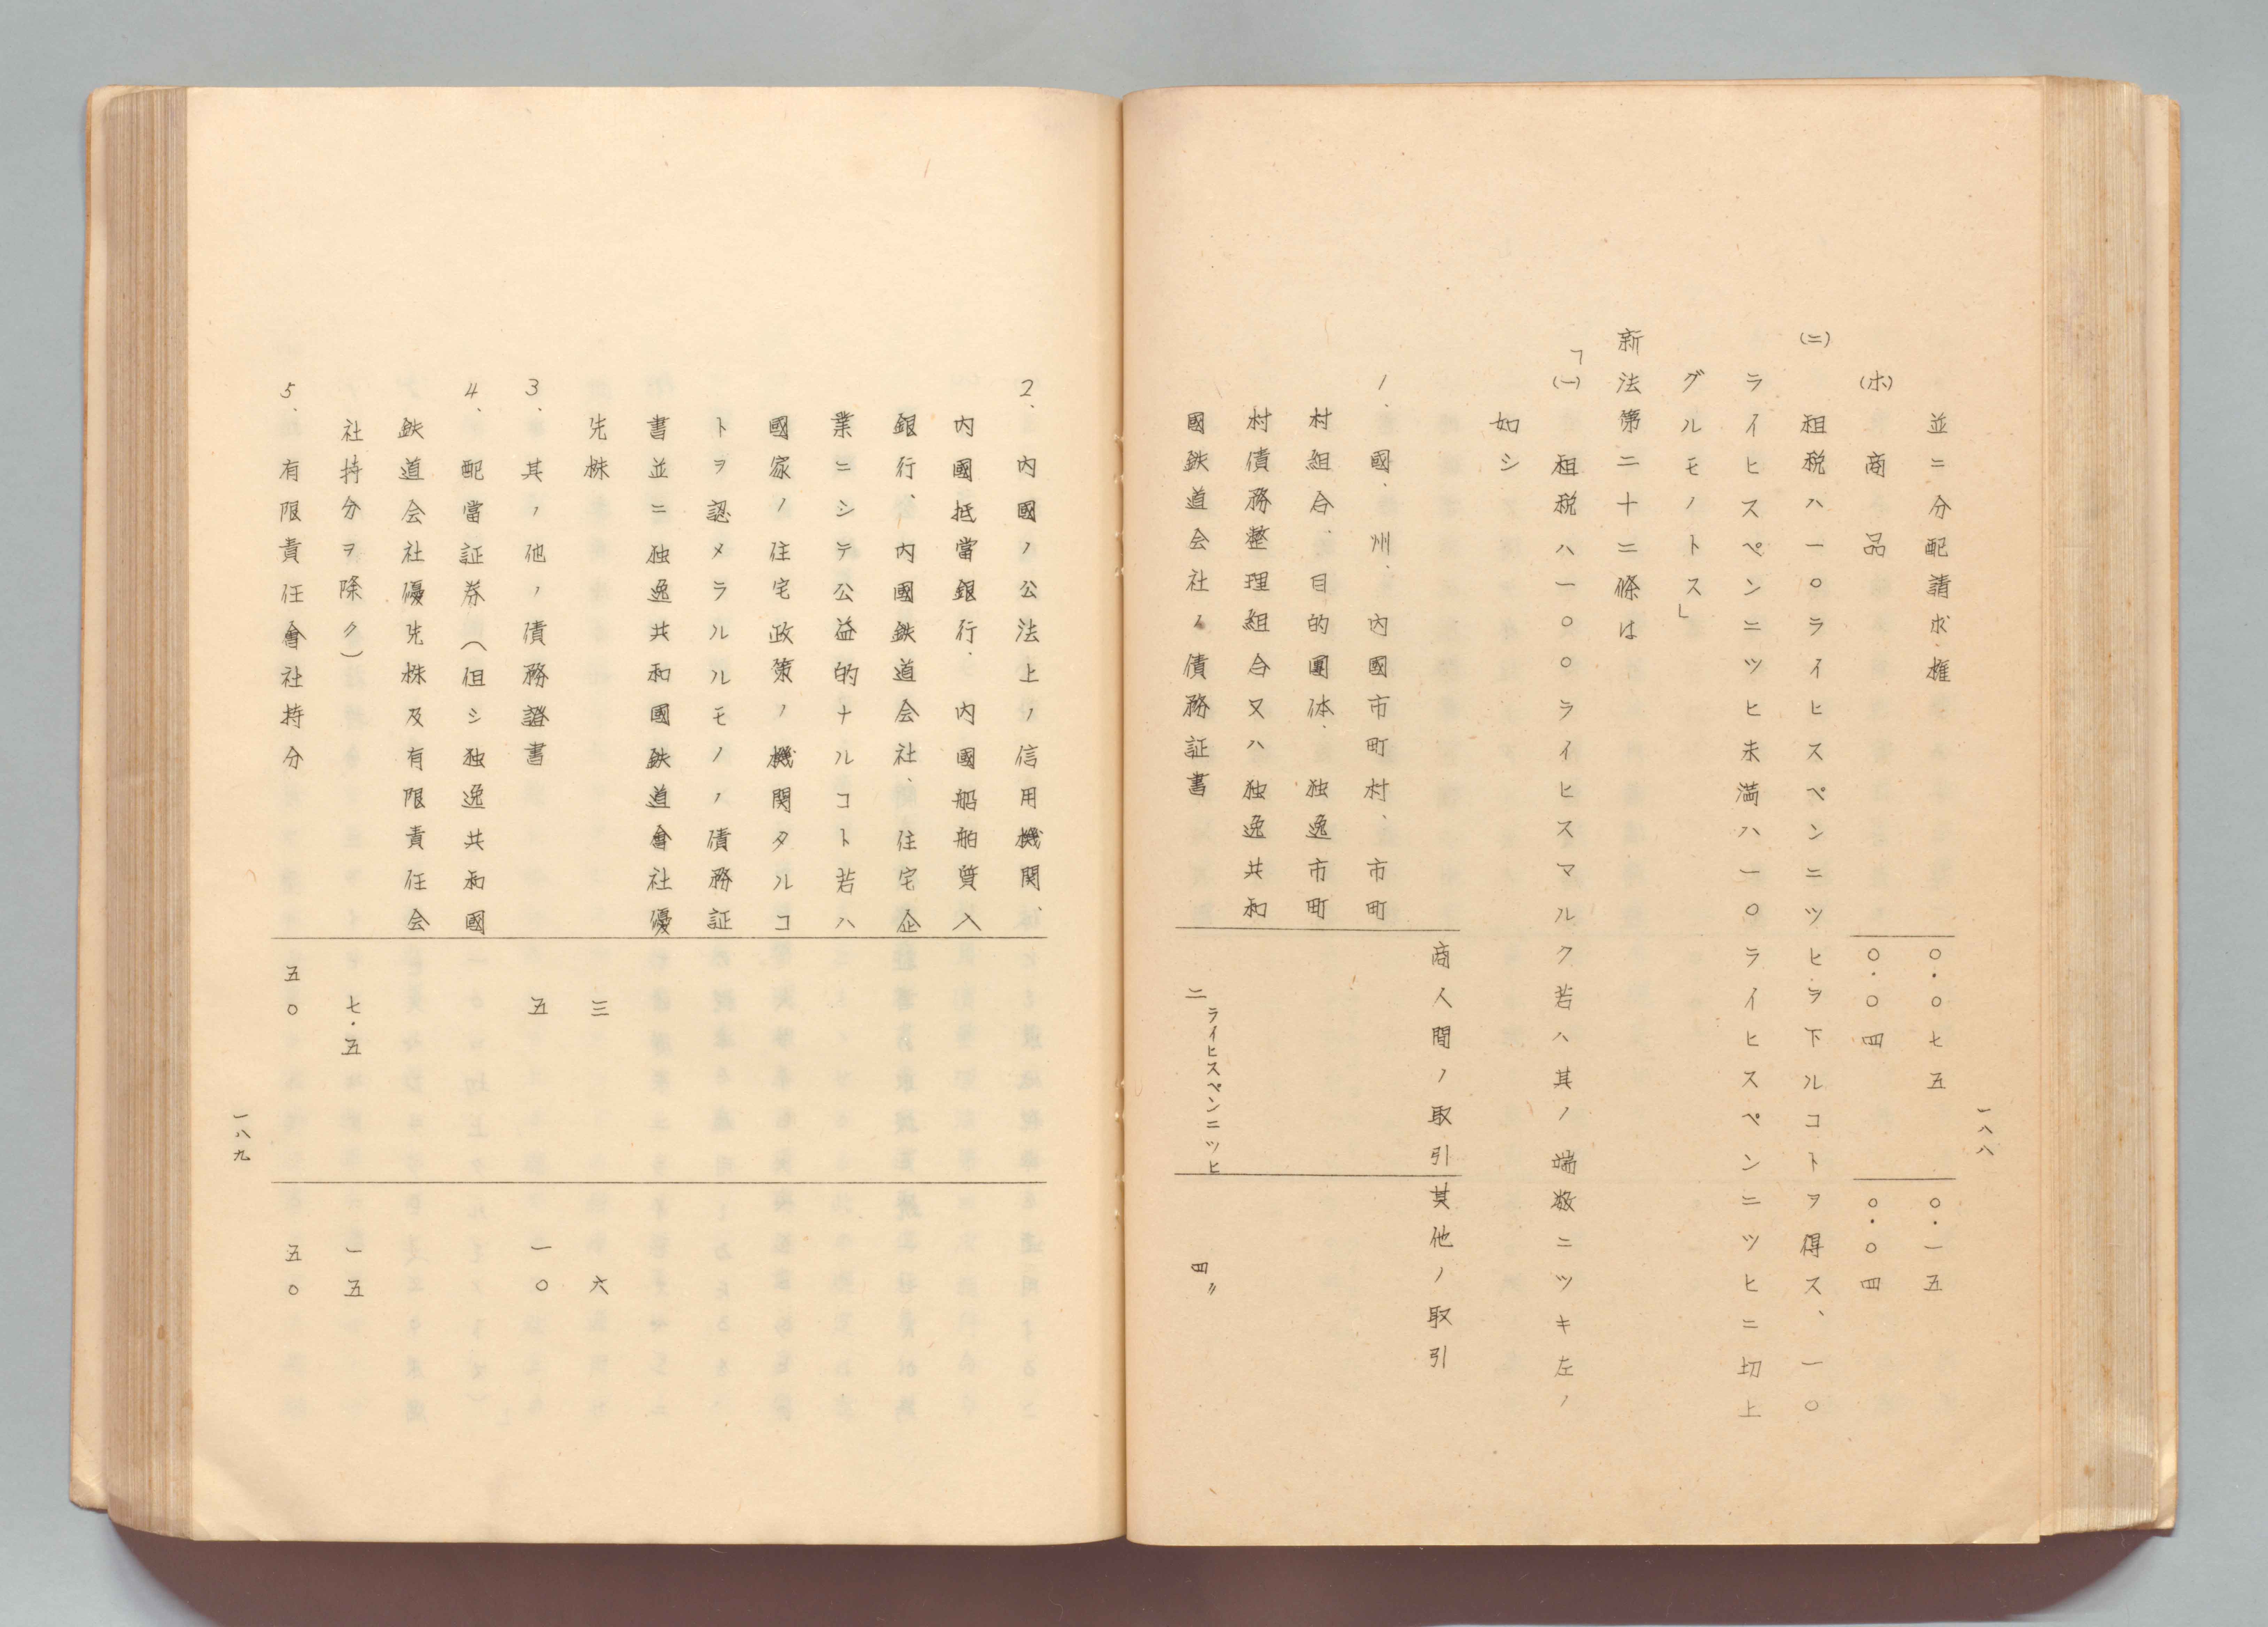 一八八
並ニ分配請求権 〇・〇七五 〇・一五
(ホ) 商品 〇・〇四 〇・〇四
(二) 租税ハ一〇ライヒスペンニツヒヲ下ルコトヲ得ス、一〇
ライヒスペンニツヒ未満ハ一〇ライヒスペンニツヒニ切上
グルモノトス」
新法第二十二條は
「(一) 租税ハ一〇〇ライヒスマルク若ハ其ノ端数ニツキ左ノ
如シ
商人間ノ取引 其他ノ取引
1、國、州、内國市町村、市町
村組合、目的團体、独逸市町
村債務整理組合又ハ独逸共和
國鉄道会社ノ債務証書 二ライヒスペンニツヒ 四〃
2、内國ノ公法上ノ信用機関、
内國抵當銀行、内國船舶質入
銀行、内國鉄道会社、住宅企
業ニシテ公益的ナルコト若ハ
國家ノ住宅政策ノ機関タルコ
トヲ認メラルルモノノ債務証
書並ニ独逸共和國鉄道會社優
先株 三 六
3、其ノ他ノ債務證書 五 一〇
4、配當証券(但シ独逸共和國
鉄道会社優先株及有限責任会
社持分ヲ除ク) 七・五 一五
5、有限責任會社持分 五〇 五〇
一八九